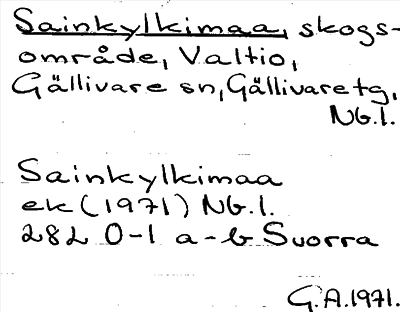 Sainkylkimaa, skogs-
område, Valtio,
Gällivare sn, Gällivare tg,
Nb.l.
Sainkylkimaa
ek (1971) Nb.l.
282 0-1 a-b Suorra
G.A.1971.